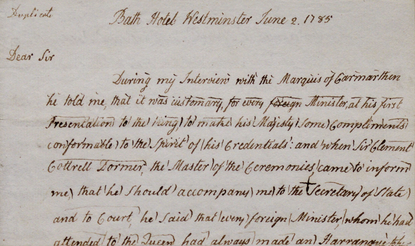 Duplicate
Bath Hotel Westminster June 2. 1785
Dear Sir
During my Interview with the Marquis of Carmarthen
he told me, that it was customary, for every foreign Minister, at his first
Presentation to the King, to make his Majesty some Compliments
conformable to the Spirit of his Credentials: and when Sir Clement
Cottrell Dormer, the Master of the Ceremonies, came to inform
me, that he should accompany me to the Secretary of State,
and to Court, he said that every foreign Minister, whom he had
attended to the Queen had always made an Harrangue to